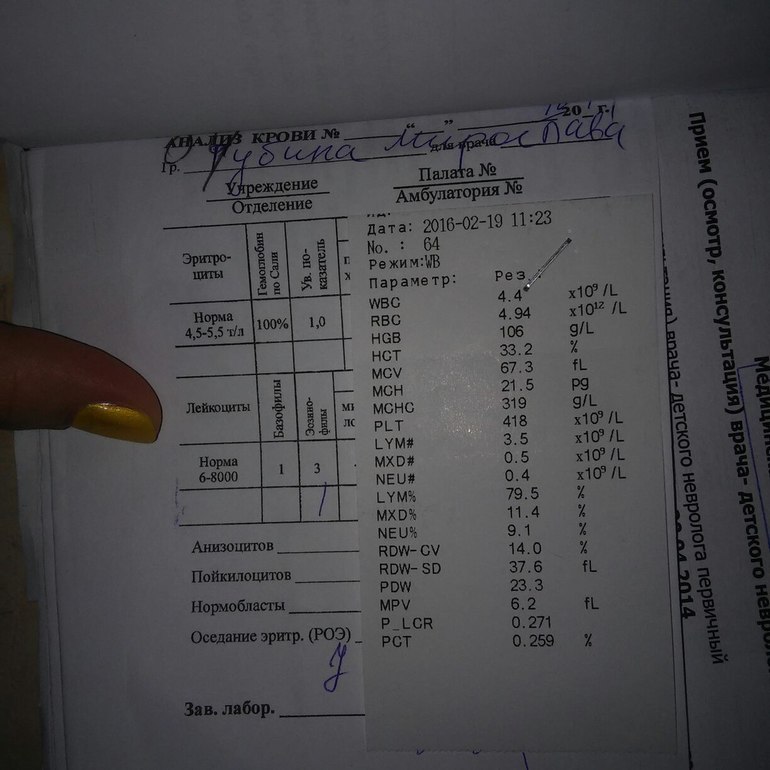 АНАЛИЗ КРОВИ № ____ “ ” ____ 20 г.
Гр. убина Мирослава для врача
Учреждение
Отделение
Палата №
Амбулатория №
Эритро-
циты
Гемоглобин
по Сали
Цв. по-
казатель
Норма
4,5-5,5 т/л
100%
1,0
Лейкоциты
Базофилы
Эозино-
филы
Норма
6-8000
1
3
Анизоцитов
Пойкилоцитов
Нормобласты
Оседание эритр. (РОЭ)
Зав. лабор.
Дата: 2016-02-19 11:23
No. : 64
Режим:WB
Параметр: Рез.
WBC 4.4 x10⁹ /L
RBC 4.94 x10¹² /L
HGB 106 g/L
HCT 33.2 %
MCV 67.3 fL
MCH 21.5 pg
MCHC 319 g/L
PLT 418 x10⁹ /L
LYM# 3.5 x10⁹ /L
MXD# 0.5 x10⁹ /L
NEU# 0.4 x10⁹ /L
LYM% 79.5 %
MXD% 11.4 %
NEU% 9.1 %
RDW-CV 14.0 %
RDW-SD 37.6 fL
PDW 23.3
MPV 6.2 fL
P_LCR 0.271
PCT 0.259 %
Прием (осмотр, консультация) врача- детского невролога первичный
врача- детского невролога
.04.2014